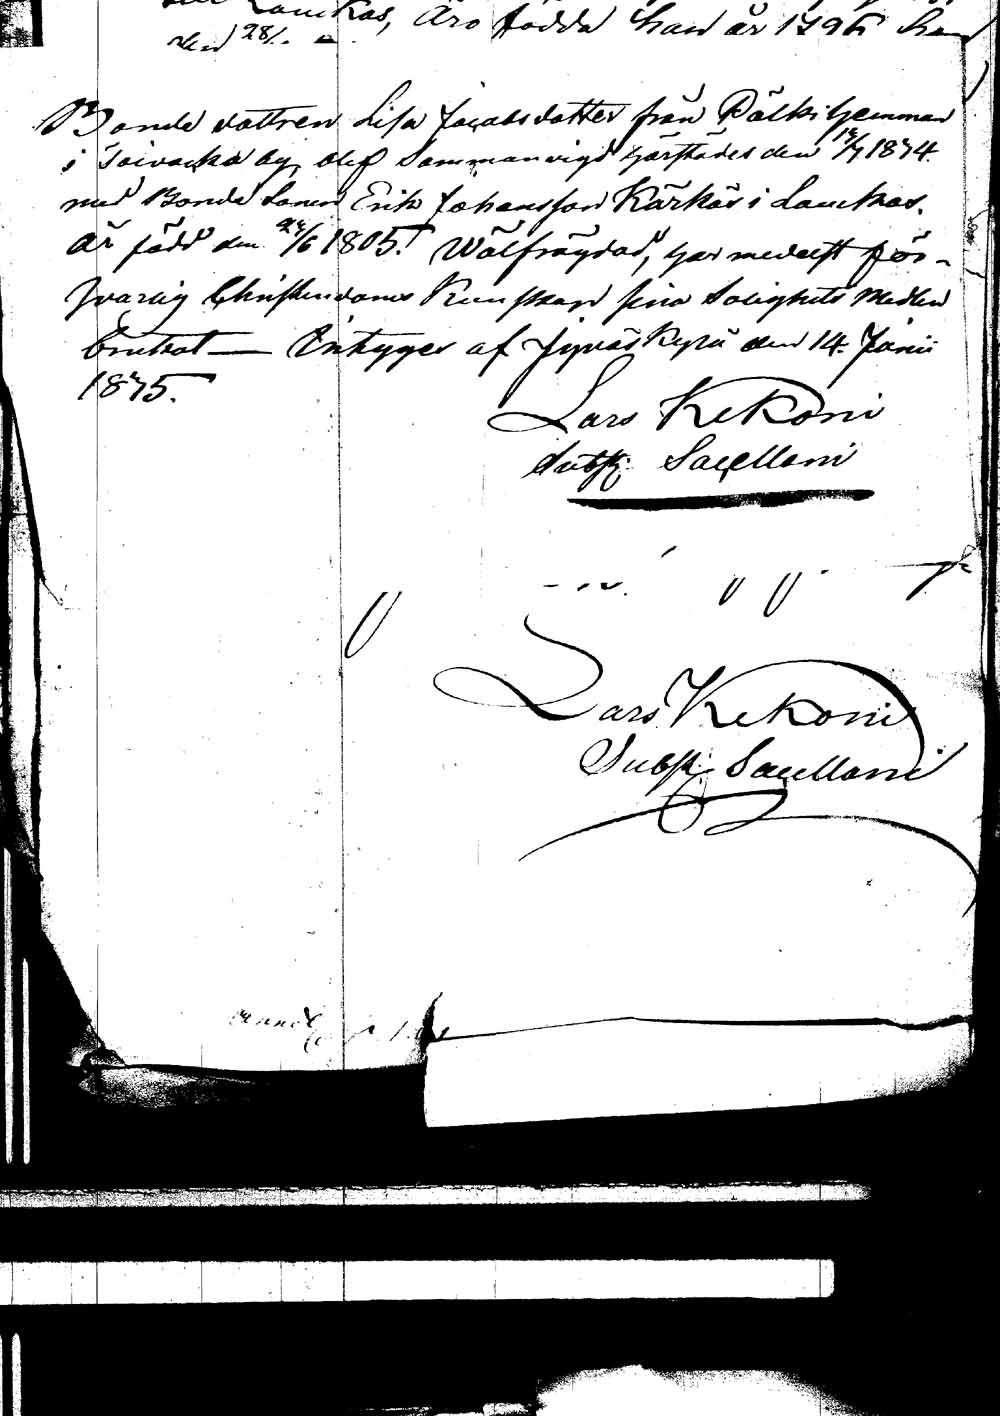 Laukas, äro födda han år 1796
den 28/
Bonde dottren Lisa Jacobsdotter från Pälki hemman
i Toivacka by, blef Sammanvigd härstädes den 12/7 1874
med Bonde Sonen Erik Johansson Kärkäs i Laukas.
är född den 24/6 1805. Wälfrägdad, har medelst för-
svarlig Christendoms Kunskap sina Salighets Medlen
brukat — Intyger af Jyväs Kylä den 14. Junii
1875.
Lars Kekoni
Subst. Sacellani
Lars Kekoni
Subst. Sacellani